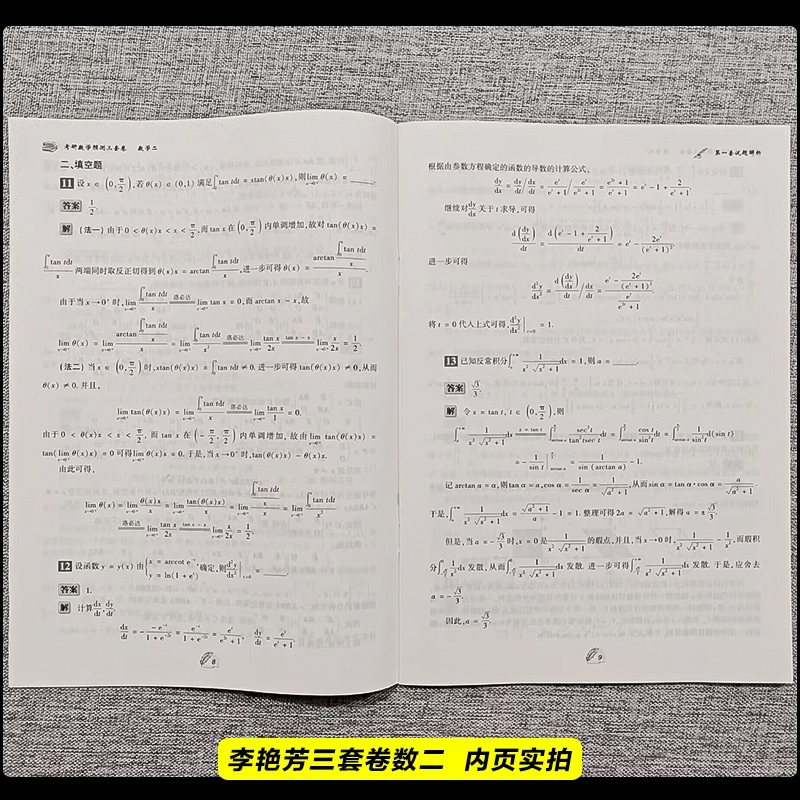 考研数学预测三套卷 数学二
二、填空题
11 设 x ∈ (0, π/2), 若 θ(x) ∈ (0,1) 满足 ∫₀ˣ tan tdt = xtan(θ(x)x), 则 lim_{x→0⁺} θ(x) = ____.
答案 1/2.
解 (法一) 由于 0 < θ(x)x < x < π/2, 而 tan x 在 (0, π/2) 内单调增加, 故对 tan(θ(x)x) =
∫₀ˣ tan tdt / x 两端同时取反正切得到 θ(x)x = arctan (∫₀ˣ tan tdt / x), 进一步可得 θ(x) = arctan (∫₀ˣ tan tdt / x) / x.
由于当 x→0⁺ 时, lim_{x→0⁺} ∫₀ˣ tan tdt / x 洛必达 lim_{x→0⁺} tan x = 0, 而 arctan x ~ x, 故
lim_{x→0⁺} θ(x) = lim_{x→0⁺} arctan (∫₀ˣ tan tdt / x) / x = lim_{x→0⁺} ∫₀ˣ tan tdt / x² 洛必达 lim_{x→0⁺} tan x / 2x tan x ~ x lim_{x→0⁺} x / 2x = 1/2.
(法二) 当 x ∈ (0, π/2) 时, xtan(θ(x)x) = ∫₀ˣ tan tdt ≠ 0. 进一步可得 tan(θ(x)x) ≠ 0, 从而
θ(x) ≠ 0. 并且,
lim_{x→0⁺} tan(θ(x)x) = lim_{x→0⁺} ∫₀ˣ tan tdt / x 洛必达 lim_{x→0⁺} tan x / 1 = 0.
由于 0 < θ(x)x < x < π/2, 而 tan x 在 (−π/2, π/2) 内单调增加, 故由 lim_{x→0⁺} tan(θ(x)x) =
tan(lim_{x→0⁺} θ(x)x) = 0 可得 lim_{x→0⁺} θ(x)x = 0. 于是, 当 x→0⁺ 时, tan(θ(x)x) ~ θ(x)x.
由此可得,
lim_{x→0⁺} θ(x) = lim_{x→0⁺} θ(x)x / x = lim_{x→0⁺} tan(θ(x)x) / x = lim_{x→0⁺} (∫₀ˣ tan tdt / x) / x = lim_{x→0⁺} ∫₀ˣ tan tdt / x²
洛必达 lim_{x→0⁺} tan x / 2x tan x ~ x lim_{x→0⁺} x / 2x = 1/2.
12 设函数 y = y(x) 由 { x = arccot e⁻ᵗ, y = ln(1 + eᵗ) 确定, 则 d²y/dx² |_{t=0} = ____.
答案 1.
解 计算 dx/dt, dy/dt.
dx/dt = − −e⁻ᵗ / (1 + e⁻²ᵗ) = e⁻ᵗ / (1 + e⁻²ᵗ) = eᵗ / (e²ᵗ + 1), dy/dt = eᵗ / (eᵗ + 1).
8
第一套试题解析
根据由参数方程确定的函数的导数的计算公式,
dy/dx = (dy/dt) / (dx/dt) = eᵗ/(eᵗ + 1) / eᵗ/(e²ᵗ + 1) = (e²ᵗ + 1)/(eᵗ + 1) = eᵗ − 1 + 2/(eᵗ + 1).
继续对 dy/dx 关于 t 求导, 可得
d(dy/dx)/dt = d(eᵗ − 1 + 2/(eᵗ + 1))/dt = eᵗ − 2eᵗ/(eᵗ + 1)².
进一步可得
d²y/dx² = d(dy/dx)/dt / dx/dt = (eᵗ − 2eᵗ/(eᵗ + 1)²) / (eᵗ/(e²ᵗ + 1)).
将 t = 0 代入上式可得, d²y/dx² |_{t=0} = 1.
13 已知反常积分 ∫ₐ⁺∞ 1/(x²√(x² + 1)) dx = 1, 则 a = ____.
答案 √3/3.
解 令 x = tan t, t ∈ (0, π/2), 则
∫ₐ⁺∞ 1/(x²√(x² + 1)) dx x = tan t ∫_{arctan a}^{π/2} sec²t/(tan²tsec t) dt = ∫_{arctan a}^{π/2} cos t/sin²t dt = ∫_{arctan a}^{π/2} 1/sin²t d(sin t)
= −1/sin t |_{arctan a}^{π/2} = 1/sin (arctan a) − 1.
记 arctan a = α, 则 tan α = a, cos α = 1/sec α = 1/√(a² + 1), 从而 sin α = tan α · cos α = a/√(a² + 1).
于是, ∫ₐ⁺∞ 1/(x²√(x² + 1)) dx = √(a² + 1)/a − 1 = 1. 整理可得 2a = √(a² + 1), 解得 a = ±√3/3.
但是, 当 a = −√3/3 时, x = 0 是 1/(x²√(x² + 1)) 的瑕点, 并且, 当 x→0 时, 1/(x²√(x² + 1)) ~ 1/x², 而瑕积
分 ∫_{−√3/3}^0 1/x² dx 发散, 从而 ∫_{−√3/3}^0 1/(x²√(x² + 1)) dx 发散, 进一步可得 ∫_{−√3/3}^{+∞} 1/(x²√(x² + 1)) dx 发散. 于是, 应舍去
a = −√3/3.
因此, a = √3/3.
9
李艳芳三套卷数二 内页实拍